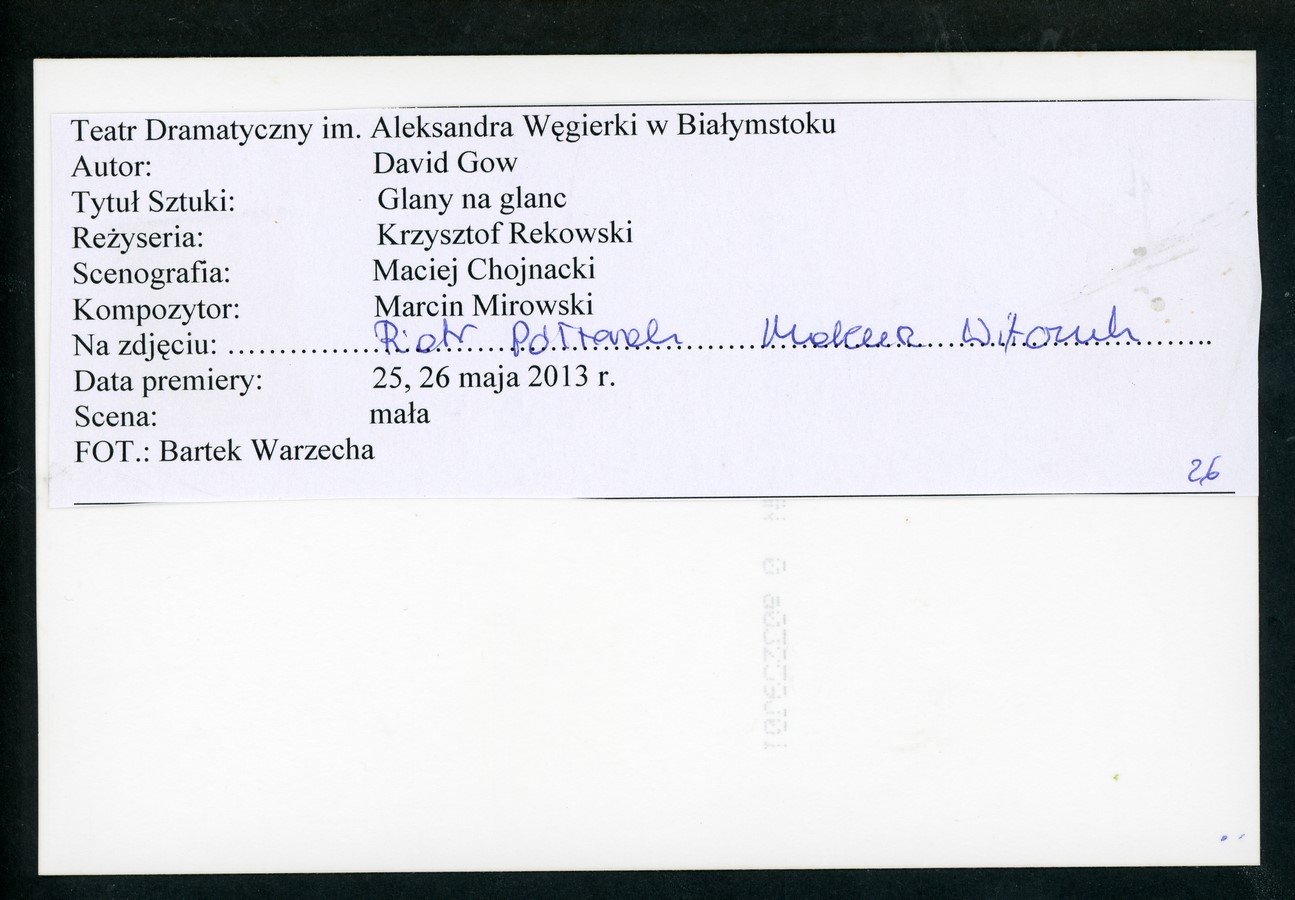 Teatr Dramatyczny im. Aleksandra Węgierki w Białymstoku
Autor: David Gow
Tytuł Sztuki: Glany na glanc
Reżyseria: Krzysztof Rekowski
Scenografia: Maciej Chojnacki
Kompozytor: Marcin Mirowski
Na zdjęciu: Piotr Półtorak
Data premiery: 25, 26 maja 2013 r.
Scena: mała
FOT.: Bartek Warzecha
26